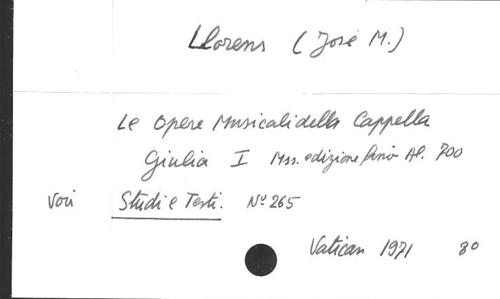 Llorens (José M.)
Le Opere Musicali della Cappella
Giulia I Mss. edizione fino Al. 700
Voir Studi e Testi. No 265
Vatican 1971 80